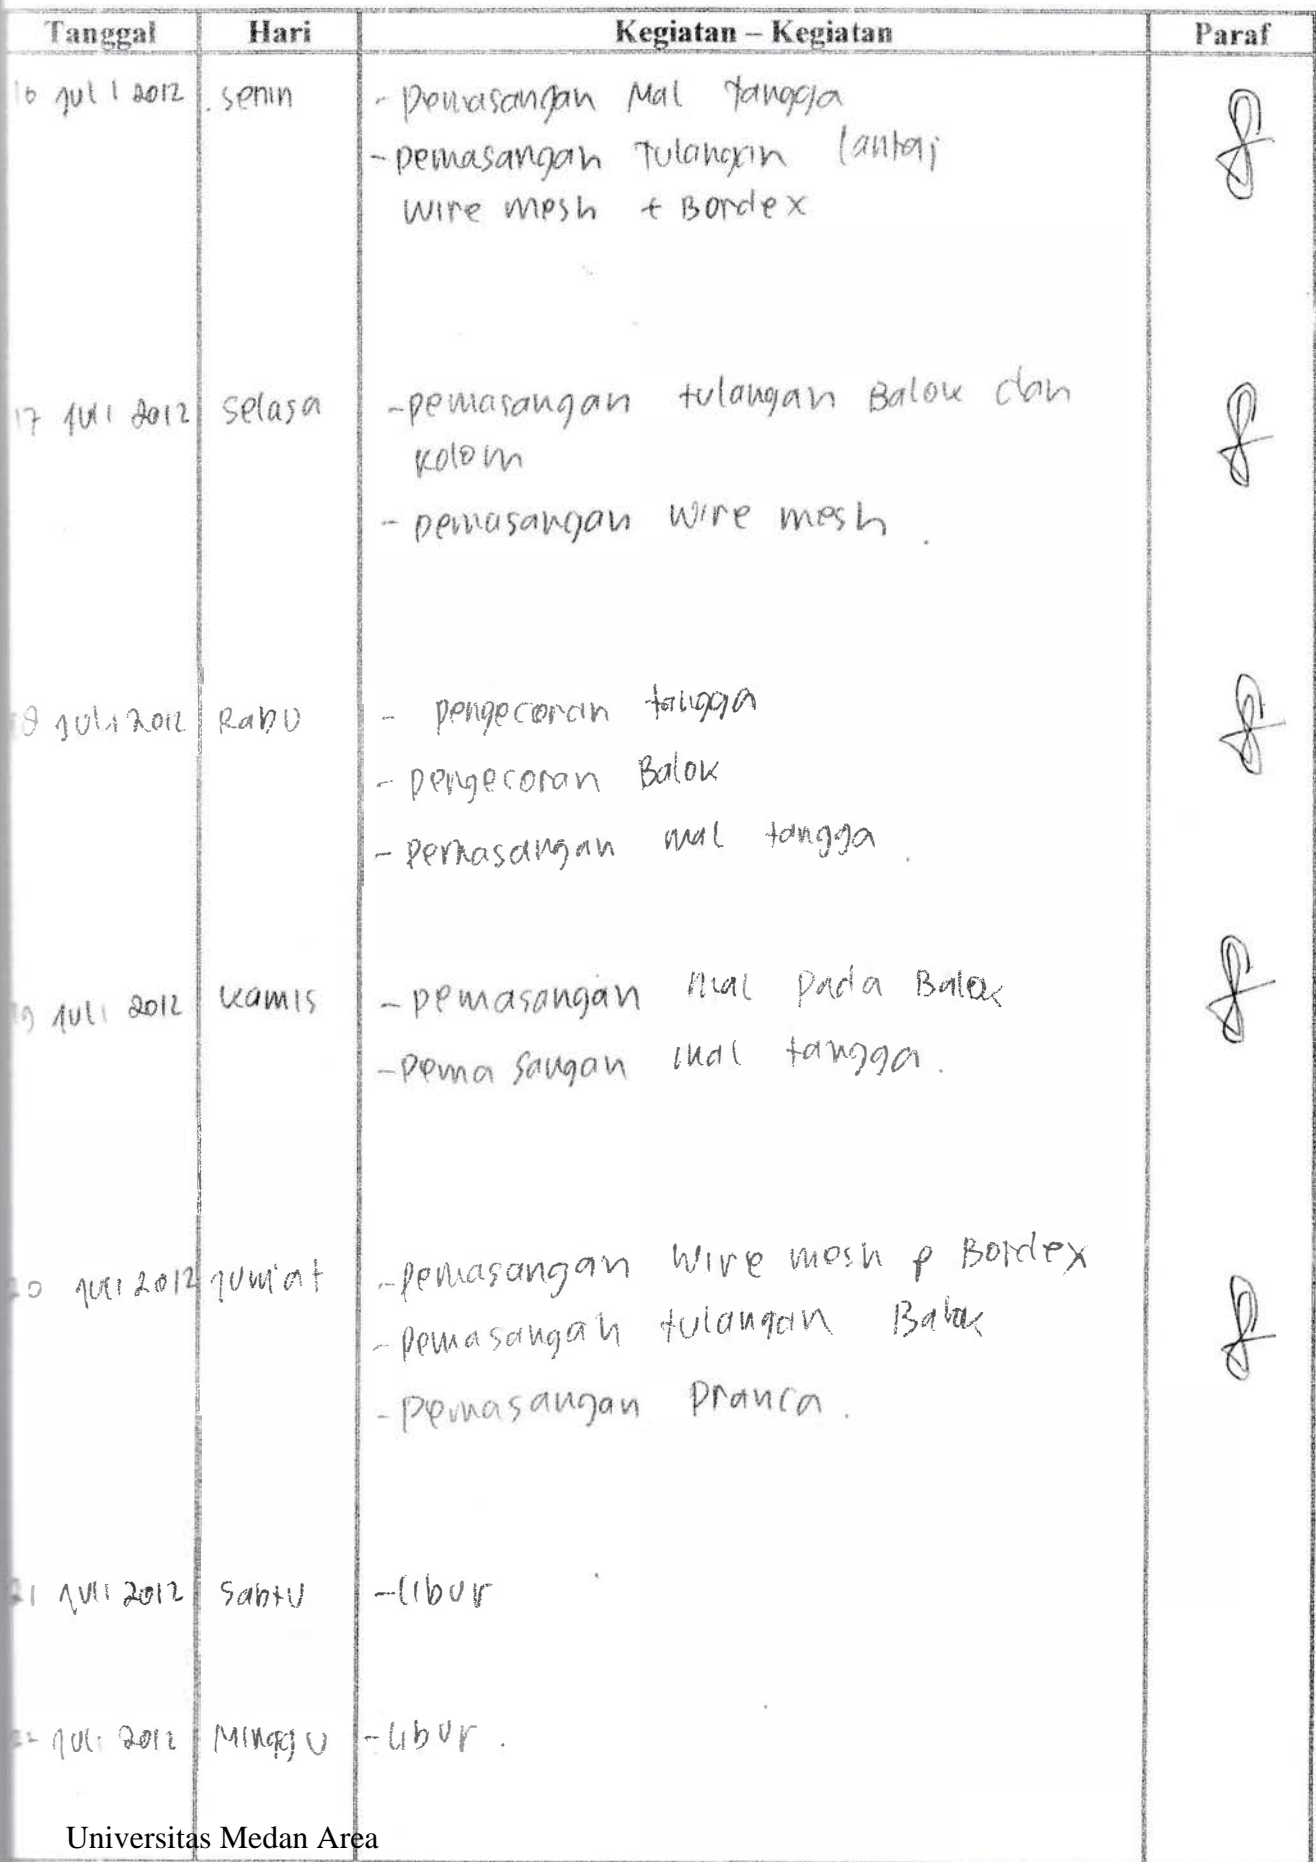 Tanggal Hari Kegiatan – Kegiatan Paraf
16 juli 2012 senin - pemasangan Mal Tangga
- pemasangan Tulangan lantai
wire mesh + Bordex
17 juli 2012 selasa - pemasangan tulangan Balok dan
kolom
- pemasangan wire mesh .
18 juli 2012 Rabu - pengecoran tangga
- pengecoran Balok
- pemasangan mal tangga .
19 juli 2012 kamis - pemasangan mal pada Balok
- pemasangan mal tangga .
20 juli 2012 jum'at - pemasangan wire mesh Bordex
- pemasangan tulangan Balok
- pemasangan pranca .
21 juli 2012 sabtu - libur
22 juli 2012 Minggu - libur .
Universitas Medan Area